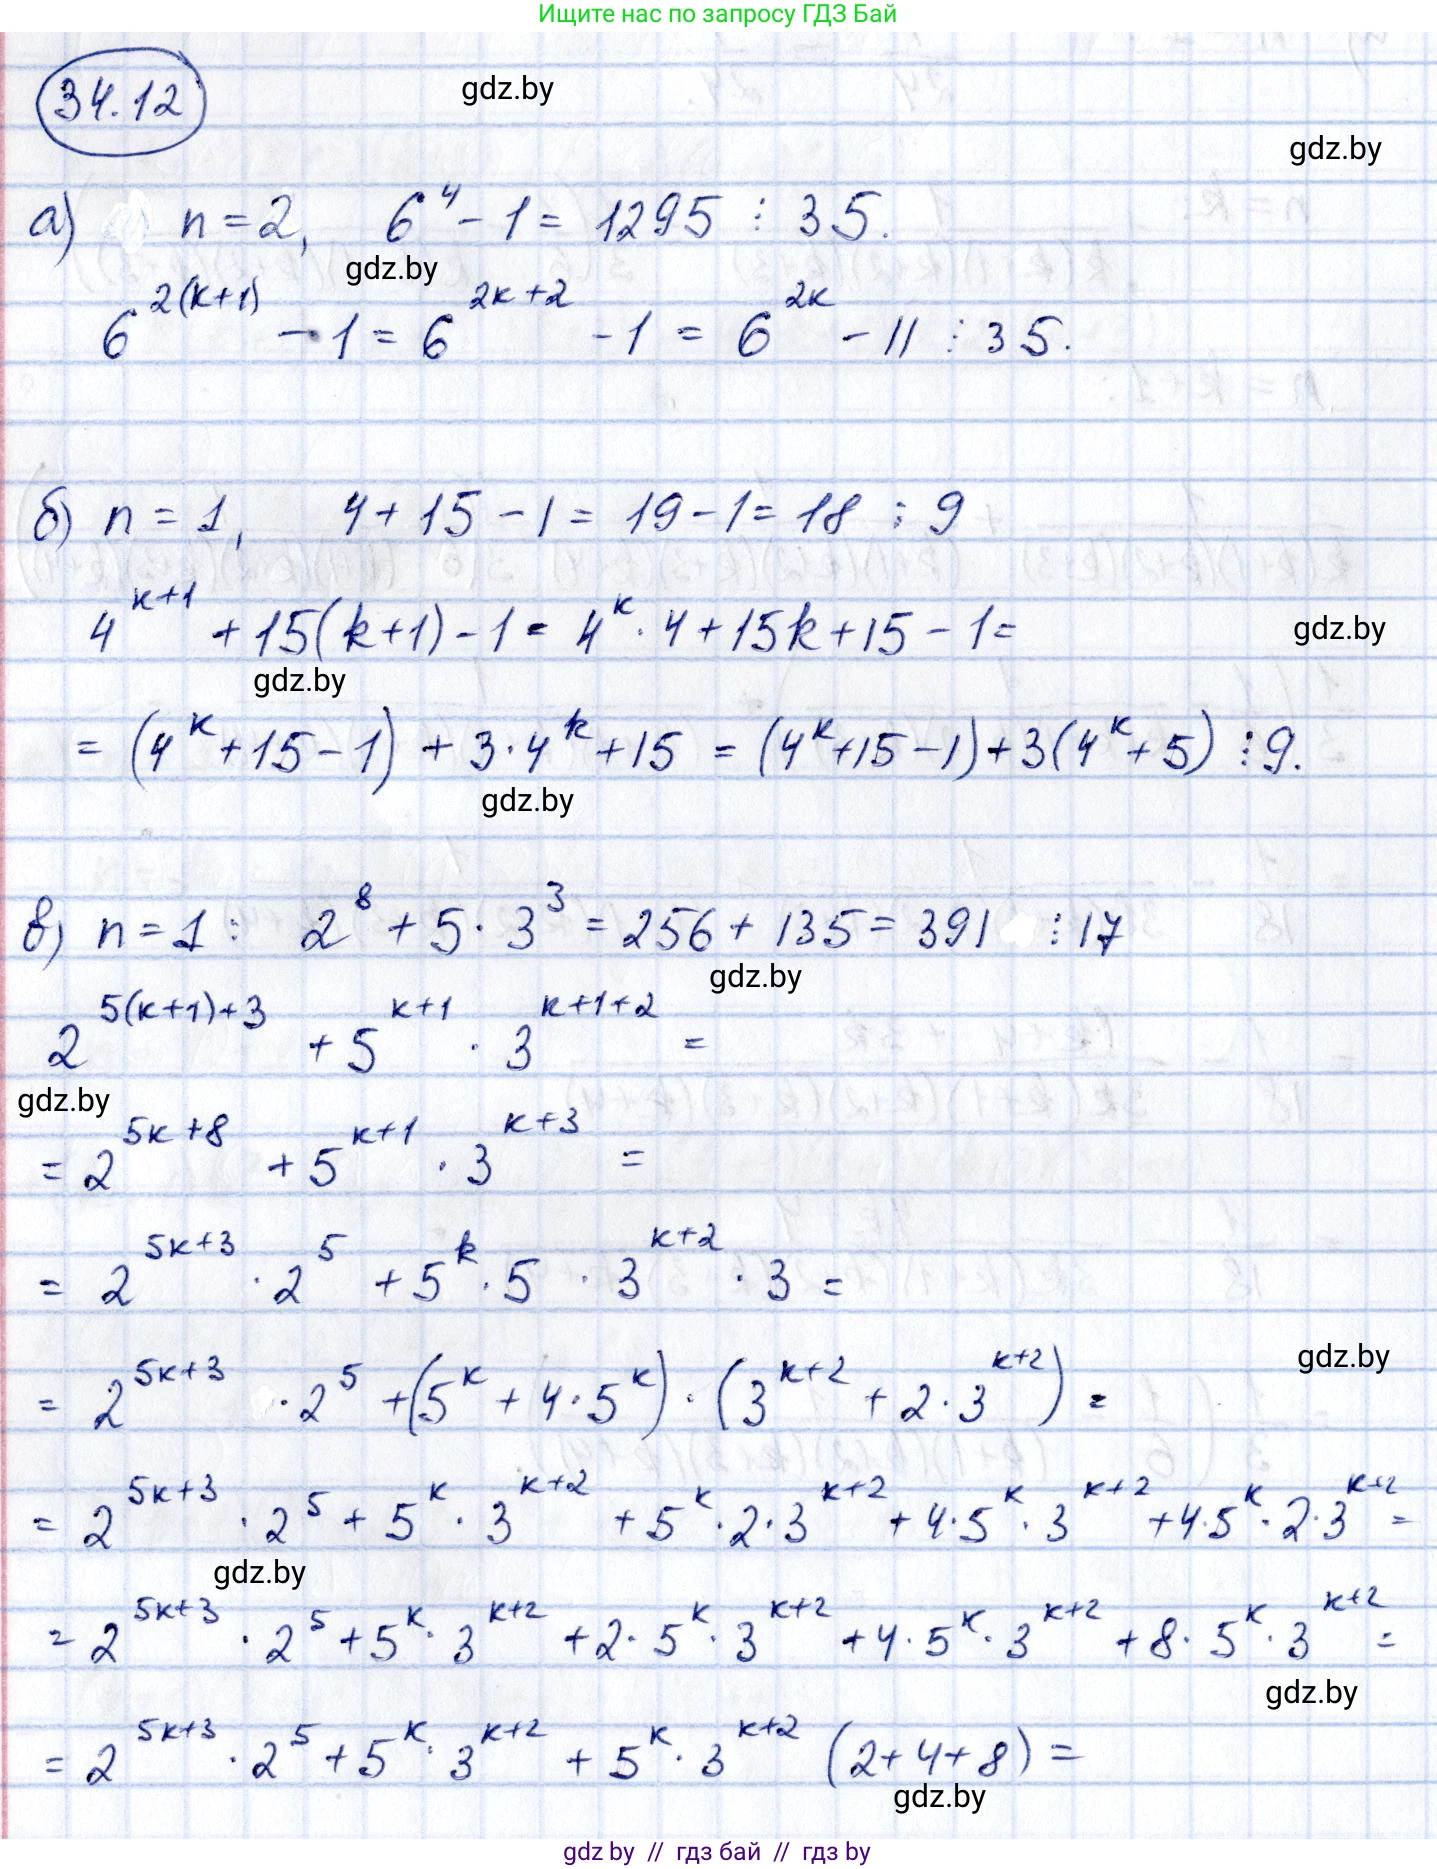 Ищите нас по запросу ГДЗ Бай
34.12
gdz.by
gdz.by
а) n = 2, 6^4 - 1 = 1295 ⋮ 35.
gdz.by
6^{2(k+1)} - 1 = 6^{2k+2} - 1 = 6^{2k} - 11 ⋮ 35.
б) n = 1, 4 + 15 - 1 = 19 - 1 = 18 ⋮ 9
4^{k+1} + 15(k+1) - 1 = 4^k · 4 + 15k + 15 - 1 =
gdz.by
gdz.by
= (4^k + 15 - 1) + 3 · 4^k + 15 = (4^k + 15 - 1) + 3(4^k + 5) ⋮ 9.
gdz.by
в) n = 1: 2^8 + 5 · 3^3 = 256 + 135 = 391 ⋮ 17
gdz.by
2^{5(k+1)+3} + 5^{k+1} · 3^{k+1+2} =
gdz.by
= 2^{5k+8} + 5^{k+1} · 3^{k+3} =
= 2^{5k+3} · 2^5 + 5^k · 5 · 3^{k+2} · 3 =
gdz.by
= 2^{5k+3} · 2^5 + (5^k + 4 · 5^k) · (3^{k+2} + 2 · 3^{k+2}) =
= 2^{5k+3} · 2^5 + 5^k · 3^{k+2} + 5^k · 2 · 3^{k+2} + 4 · 5^k · 3^{k+2} + 4 · 5^k · 2 · 3^{k+2} =
gdz.by
= 2^{5k+3} · 2^5 + 5^k · 3^{k+2} + 2 · 5^k · 3^{k+2} + 4 · 5^k · 3^{k+2} + 8 · 5^k · 3^{k+2} =
gdz.by
= 2^{5k+3} · 2^5 + 5^k · 3^{k+2} + 5^k · 3^{k+2} (2 + 4 + 8) =
gdz.by
gdz by // гдз бай // гдз by